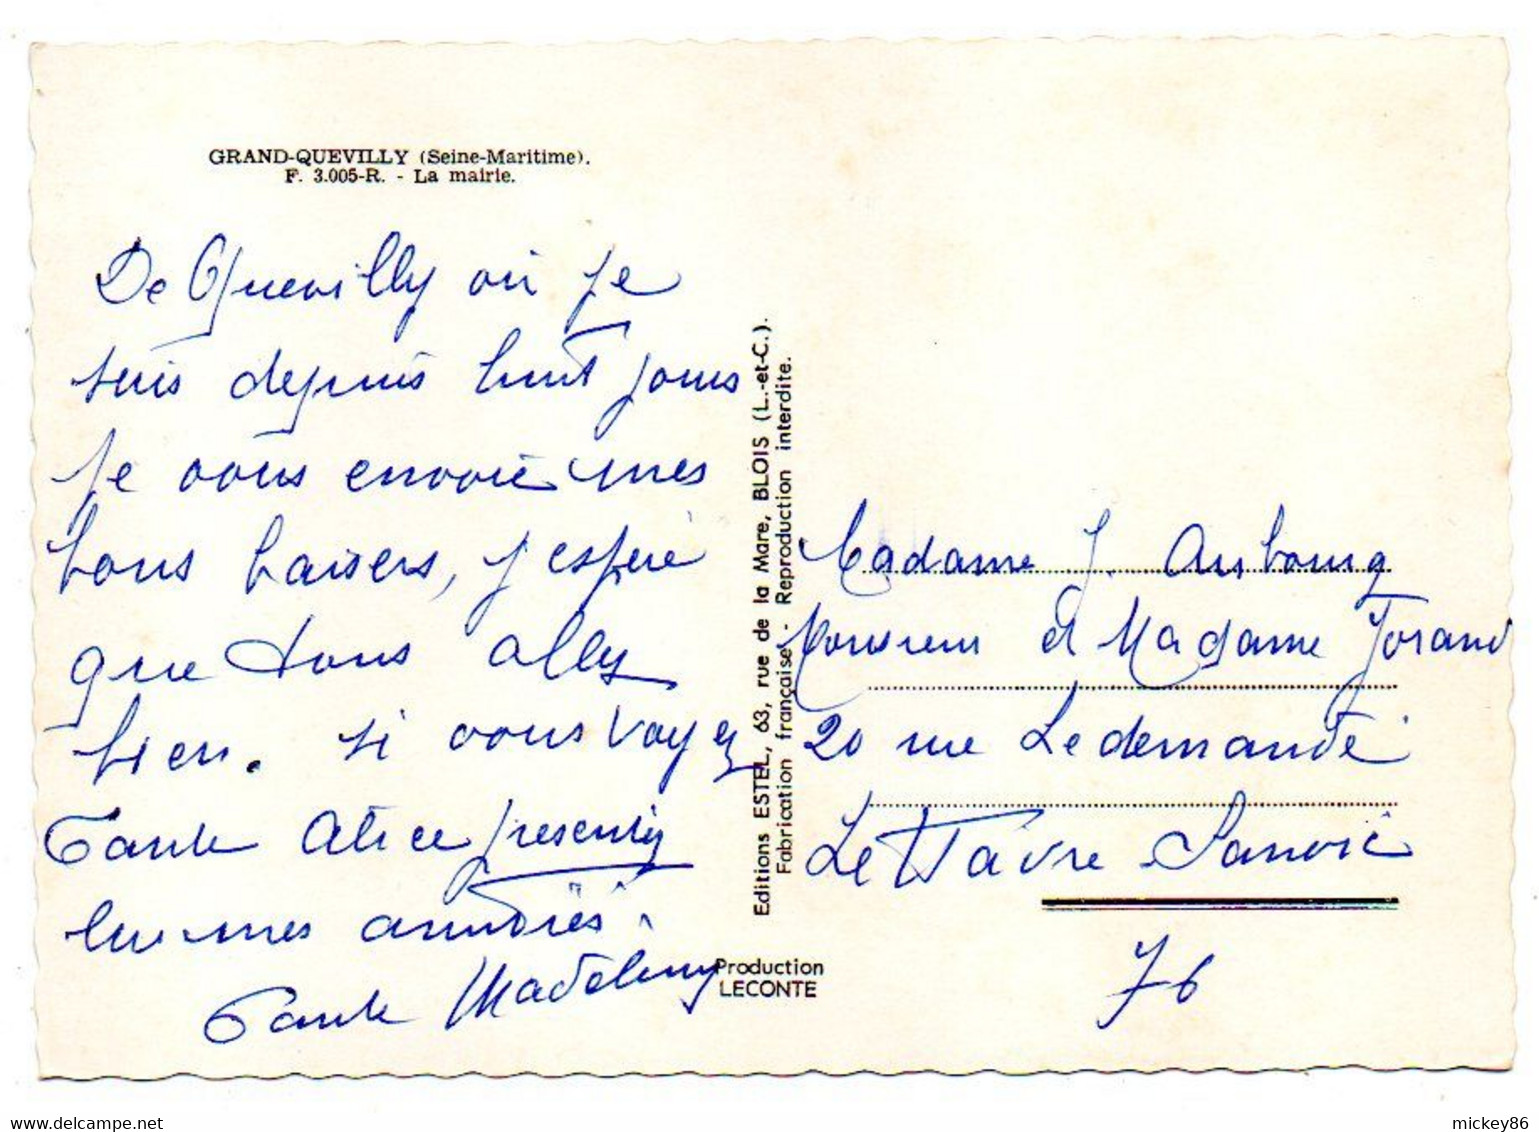 GRAND-QUEVILLY (Seine-Maritime).
F. 3.005-R. - La mairie.
De Quevilly où je
suis depuis huit jours
je vous envoie mes
bons baisers, j'espère
que tous allez
bien. si vous voyez
Tante Alice presentez
lui mes amitiés.
Tante Madeleine
Editions ESTEL, 63, rue de la Mare, BLOIS (L.-et-C.).
Fabrication française - Reproduction interdite.
Production
LECONTE
Madame J. Aubourg
Monsieur et Madame
20 rue Ledemandé
Le Havre Sanvic
76
delcampe.net
mickey86